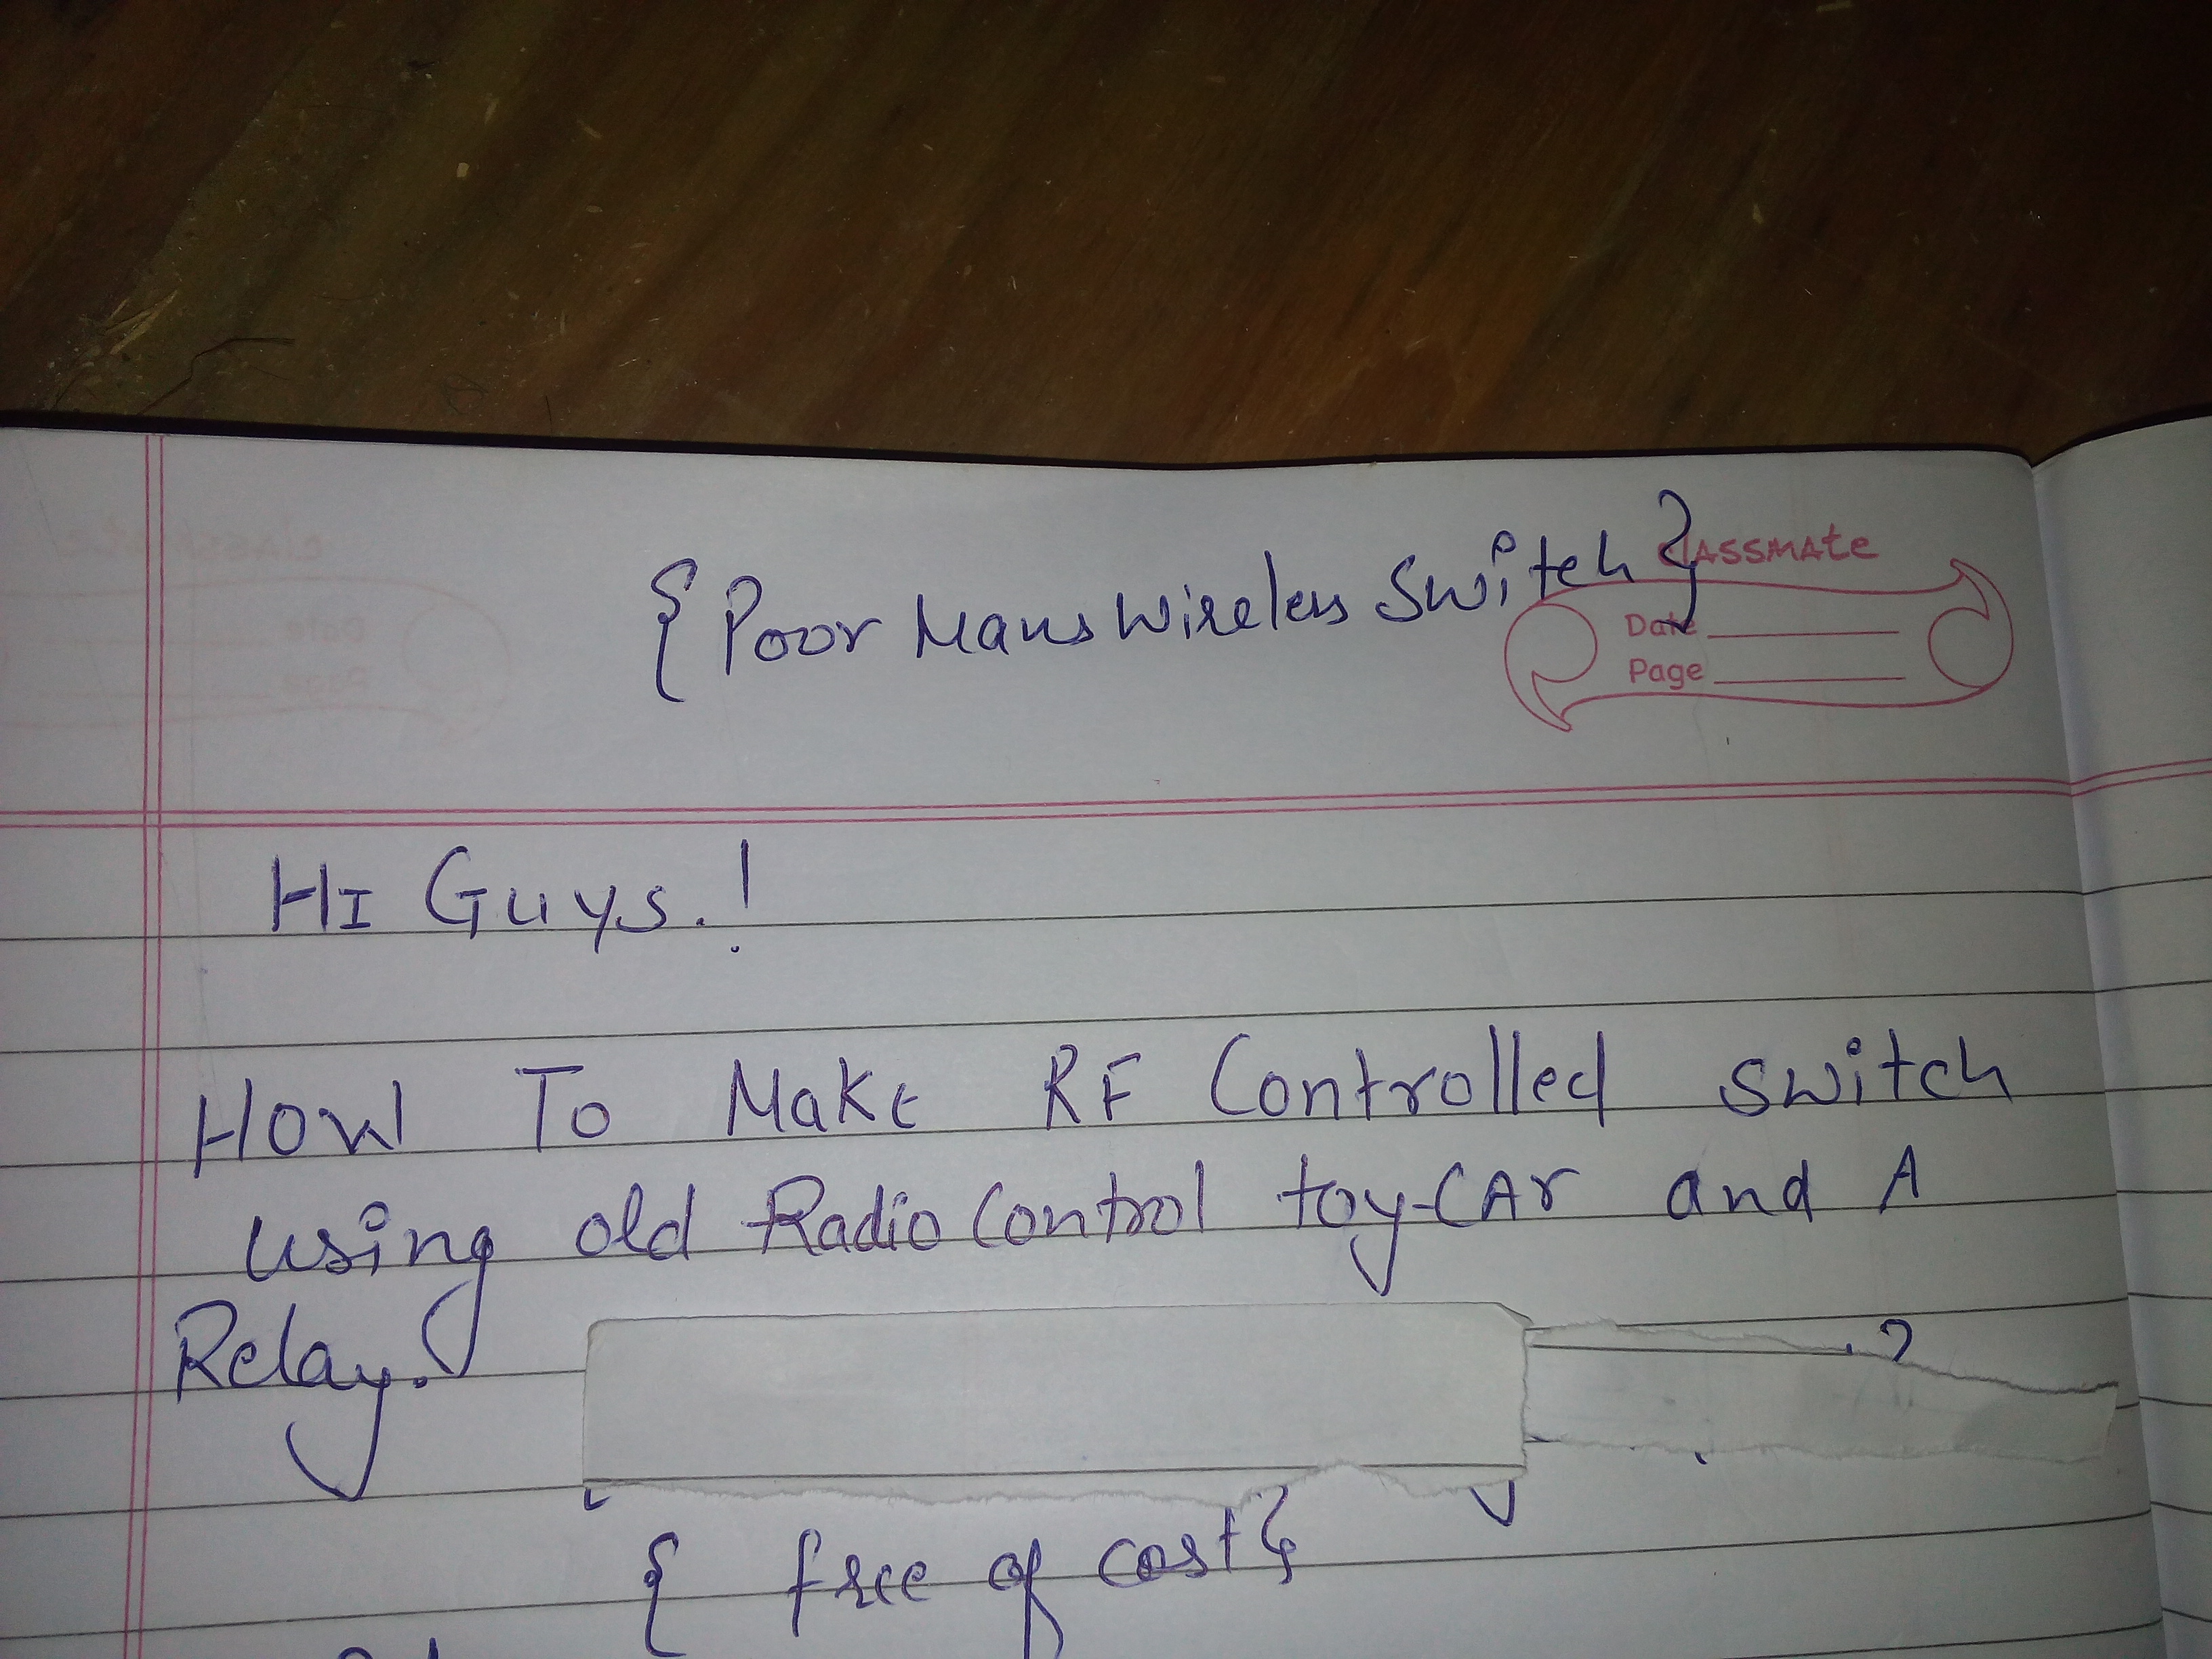 classmate
{ Poor Mans Wireless Switch }
Date
Page
HI Guys.!
How To Make RF Controlled switch
using old Radio Control toy-CAr and A
Relay.
{ free of cost }